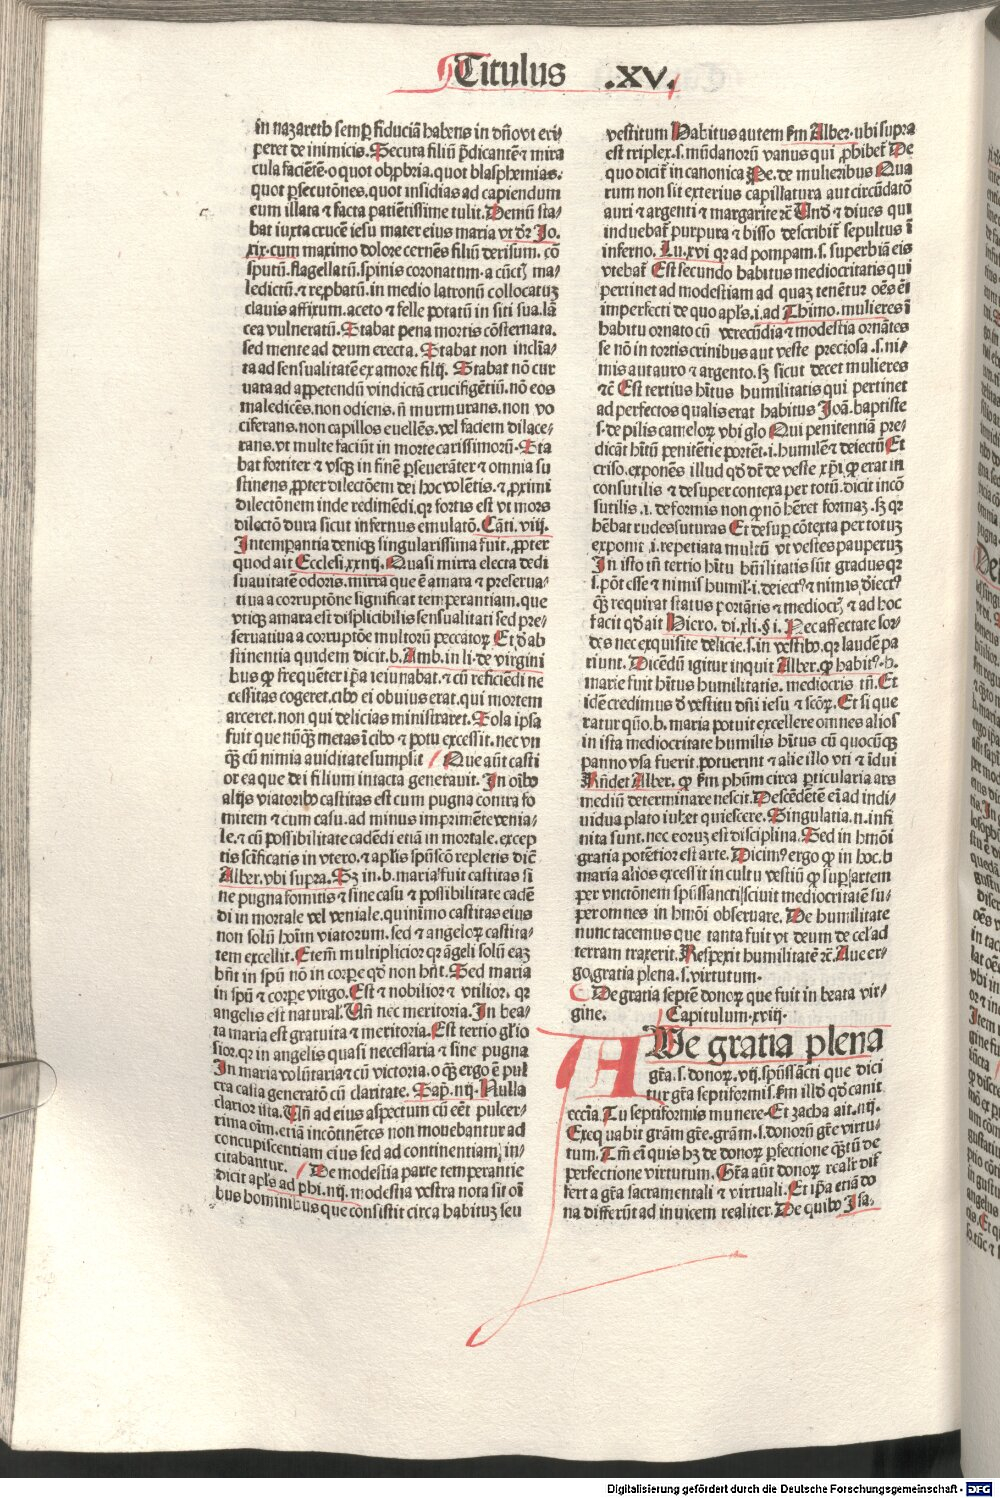 Titulus .XV.
in nazareth semꝑ fiduciā habens in dño vt eri⸗
peret de inimicis. Secuta filiū p̄dicantē ⁊ mira
cula faciētē. o quot obꝓbria. quot blasphemias.
quot persecutōnes. quot insidias ad capiendum
eum illata ⁊ facta patiētissime tulit. Demū sta⸗
bat iuxta crucē iesu mater eius maria vt dr̄ Jo.
xix. cum maximo dolore cernēs filiū derisum. cō
sputū. flagellatū. spinis coronatum. a cūctꝭ ma⸗
ledictū. ⁊ reꝓbatū. in medio latronū collocatuꝫ
clauis affixum. aceto ⁊ felle potatū in siti sua. lā
cea vulneratū. Stabat pena mortis cōsternata.
sed mente ad deum erecta. Stabat non inclīa⸗
ta ad sensualitatē ex amore filij. Stabat nō cur
uata ad appetendū vindictā crucifigētiū. nō eos
maledicēs. non odiens. ñ murmurans. non vo
ciferans. non capillos euellēs. vel faciem dilace⸗
rans. vt multe faciūt in morte carissimorū. Sta
bat fortiter ⁊ vsqꝫ in finē ꝑseuerāter ⁊ omnia su
stinens ꝓpter dilectōem dei hoc volētis. ⁊ ꝓximi
dilectōnem inde redimēdi. qꝛ fortis est vt mors
dilectō dura sicut infernus emulatō. Cāti. viij.
Jntemperantia deniqꝫ singularissima fuit. ꝓpter
quod ait Ecclesi. xxiiij. Quasi mirra electa dedi
suauitatē odoris. mirra que ē amara ⁊ preserua⸗
tiua a corruptōne significat temperantiam. que
vtiqꝫ amara est displicibilis sensualitati sed pre⸗
seruatiua a corruptōe multorū peccatoꝝ Et d̓ ab
stinentia quidem dicit. b. Amb. in li. de virgini
bus ꝙ frequēter ip̄a ieiunabat. ⁊ cū reficiēdi ne
cessitas cogeret. cibo ei obuius erat. qui mortem
arceret. non qui delicias ministraret. Sola ipsa
fuit que nūqꝫ metas ī cibo ⁊ potu excessit. nec vn
qꝫ cū nimia auiditate sumpsit Que aūt casti
or ea que dei filium intacta generauit. Jn oībꝰ
alijs viatoribꝰ castitas est cum pugna contra fo
mitem ⁊ cum casu. ad minus imprimēte venia⸗
le. ⁊ cū possibilitate cadēdi etiā in mortale. excep
tis scīficatis in vtero. ⁊ apl̄is spūscō repletis dicē
Alber. vbi supra. Sꝫ in. b. maria fuit castitas si
ne pugna fomitis ⁊ sine casu ⁊ possibilitate cadē
di in mortale vel veniale. quinimo castitas eius
non solū hoīm viatorum. sed ⁊ angeloꝝ castita⸗
tem excellit. Etem̄ multiplicior qꝛ āgeli solū eaꝫ
bn̄t in spū nō in corpe qd̓ non bn̄t. Sed maria
in spū ⁊ corpe virgo. Est ⁊ nobilior ⁊ vtilior. qꝛ
angelis est natural̓. Vn̄ nec meritoria. Jn bea⸗
ta maria est gratuita ⁊ meritoria. Est tertio gl̓io
sior. qꝛ in angelis quasi necessaria ⁊ sine pugna
Jn maria volūtaria ⁊ cū victoria. o qꝫ ergo ē pul
cra casta generatō cū claritate. Sap. iiij. Nulla
clarior illa. Vn̄ ad eius aspectum cū eēt pulcer⸗
rima oīm. etiā incōtinētes non mouebantur ad
concupiscentiam eius sed ad continentiam in⸗
citabantur. De modestia parte temperantie
dicit apl̄s ad phi. iiij. modestia vestra nota sit oī
bus hominibus que consistit circa habituꝫ seu
vestitum Habitus autem ẜm Alber. vbi supra
est triplex. s. mūdanorū vanus qui ꝓhibet̄ De
quo dicit̄ in canonica Pe. de mulieribus Qua
rum non sit exterius capillatura aut circūdatō
auri ⁊ argenti ⁊ margarite ⁊c̄ Vnd̓ ⁊ diues qui
induebat̄ purpura ⁊ bisso describit̄ sepultus ī
inferno. Lu. xvi qꝛ ad pompam. s. superbiā eis
vtebat̄ Est secundo habitus mediocritatis qui
pertinet ad modestiam ad quaꝫ tenētur oēs ēī
imperfecti de quo apl̄s. i. ad Thimo. mulieres ī
habitu ornato cū verecūdia ⁊ modestia ornātes
se nō in tortis crinibus aut veste preciosa. s. ni⸗
mis aut auro ⁊ argento. sꝫ sicut decet mulieres
⁊c̄ Est tertius hītus humilitatis qui pertinet
ad perfectos qualis erat habitus Joā. baptiste
s. de pilis cameloꝝ vbi glo Qui penitentiā pre⸗
dicāt hītū penitētie portēt. i. humilē ⁊ deiectū Et
criso. exponēs illud qd̓ dr̄ de veste xp̄i ꝙ erat in
consutilis ⁊ desuper contexta per totū. dicit incō
sutilis. i. deformis non ꝙ nō hēret formaꝫ. sꝫ qꝛ
hēbat rudes suturas Et desuꝑ cōtexta per totuꝫ
exponit. i. repetiata multū vt vestes pauperuꝫ
Jn isto tn̄ tertio hītu hūilitatis sūt gradus qꝛ
s. pōt esse ⁊ nimis humil̓. i. deiectꝰ ⁊ nimis d̓iectꝰ
qꝫ requirat status portātis ⁊ mediocrꝭ ⁊ ad hoc
facit qd̓ ait Hiero. di. xli. § i. Nec affectate sor⸗
des nec exquisite delicie. s. in vestibꝰ. qꝛ laudē pa
riunt. Dicēdū igitur inquit Alber. ꝙ habitꝰ. b.
marie fuit hītus humilitatis. mediocris tn̄. Et
idē credimus d̓ vestitu dn̄i iesu ⁊ scōꝝ. Et si que
ratur quō. b. maria potuit excellere omnes alios
in ista mediocritate humilis hītus cū quocūqꝫ
panno vsa fuerit. potuerint ⁊ alie illo vti ⁊ īdui
Rn̄det Alber. ꝙ ẜm phūm circa ꝑticularia ars
mediū determinare nescit. Descēdētē eī ad indi⸗
uidua plato iubet quiescere. Singularia. n. infi
nita sunt. nec eoruꝫ est disciplina. Sed in hmōi
gratia potētior est arte. Dicimꝰ ergo ꝙ in hoc. b
maria alios excessit in cultu vestiū ꝙ supra artem
per vnctōnem spūssancti sciuit mediocritatē su⸗
per omnes in hmōi obseruare. De humilitate
nunc tacemus que tanta fuit vt deum de cel̓ ad
terram traxerit. Respexit humilitatē ⁊c̄. Aue er⸗
go gratia plena. s. virtutum.
De gratia septē donoꝝ que fuit in beata vir⸗
gine. Capitulum. xviij.
AVe gratia plena
gr̄a. s. donoꝝ. vij. spūssācti que dici
tur gr̄a septiformis. ẜm illd̓ qd̓ canit
eccīa. Tu septiformis munere. Et zacha ait. iiij.
Exequabit grām gr̄e. grām. s. donorū gr̄e virtu⸗
tum. Tm̄ eī quis hꝫ de donoꝝ ꝑfectione qꝫtū de
perfectione virtutum. Gr̄a aūt donoꝝ realr̄ dif
fert a gr̄a sacramentali ⁊ virtuali. Et ip̄a etiā do
na differūt ad inuicem realiter. De quibꝰ Jsa.
Digitalisierung gefördert durch die Deutsche Forschungsgemeinschaft - DFG